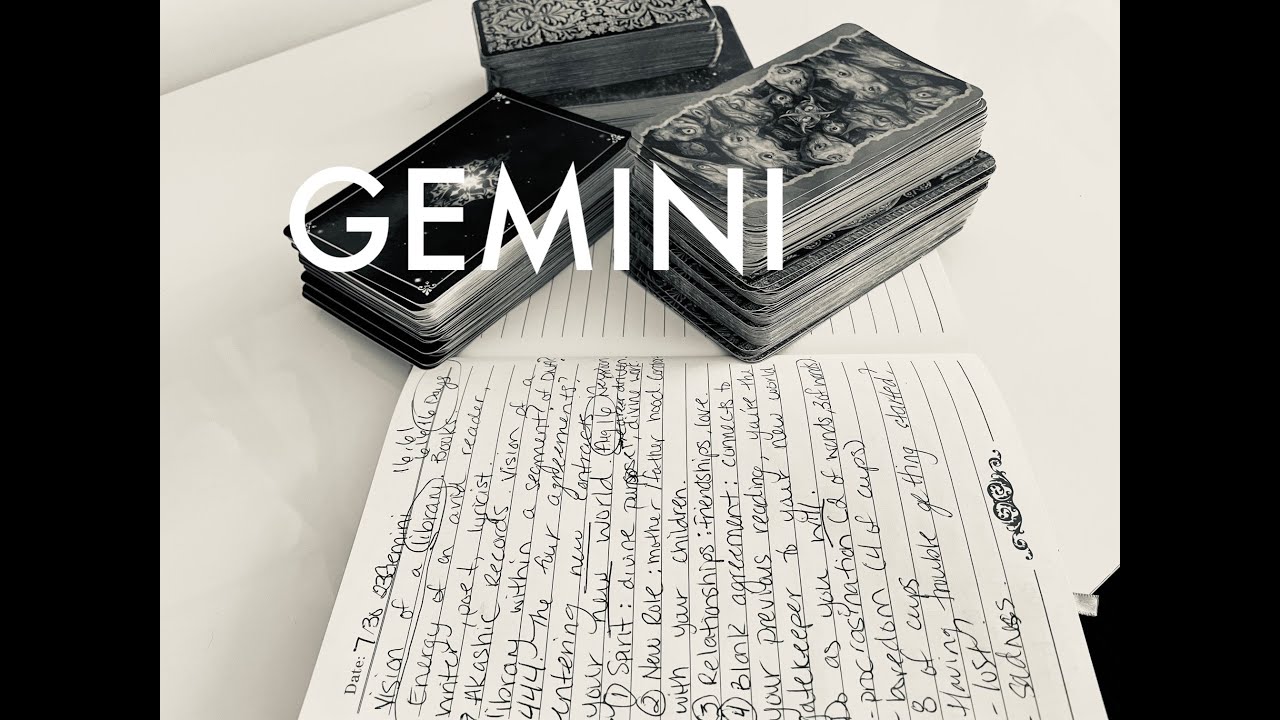 GEMINI
Date: 7.30 Gemini 16:61
Vision of a library Books Days
Energy of an avid reader,
writer, poet, lyricist
→ Akashic Records. Vision of a
library within a segment of
444! The four agreements,
entering new contracts in
your new world Aug 16
① Spirit: divine purpose, divine work
② New Role: mother/father hood
with your children.
③ Relationships: friendships, love.
④ Blank agreement: connects to
your previous reading, you're the
gatekeeper to your new world
Do as you will.
- procrasination (2 of wands, 3 of wands)
- boredom (4 of cups)
8 of cups
Having trouble getting started?
- lost
- sadness.